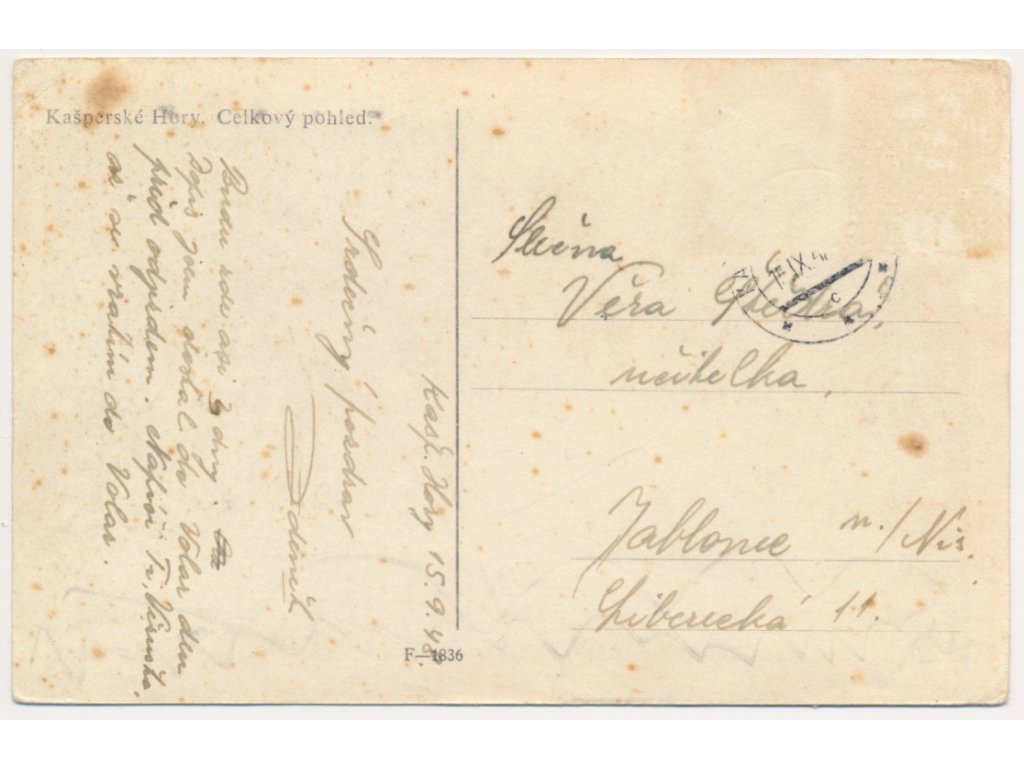 Kašperské Hory. Celkový pohled.
Kašp. Hory 15. 9. 48.
Srdečný pozdrav
Zdeněk
Budu zde asi 3 dny.
Dopis jsem dostal do Volar den
před odjezdem. Napíši Ti, Věrusko,
až se vrátím do Volar.
F—1836
Slečna
Věra
učitelka,
Jablonec n./Nis.
Liberecká 11.
15. IX. 4
C